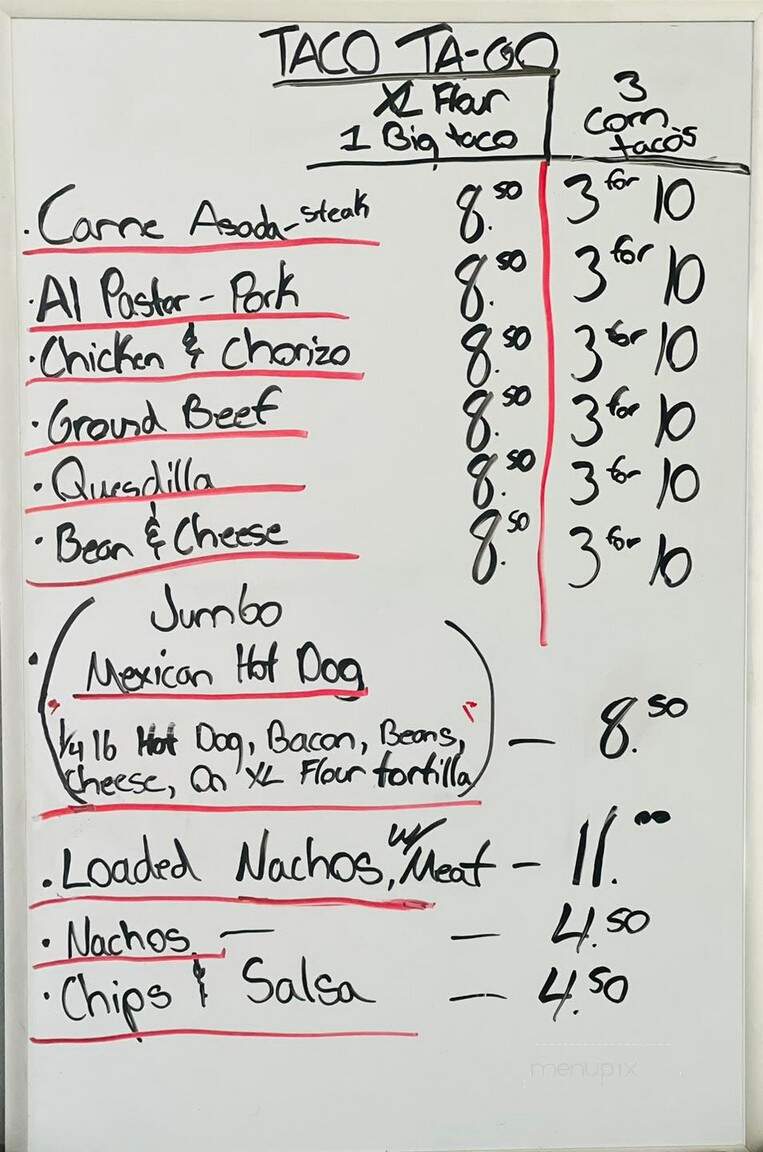 TACO TA-GO
XL Flour
1 Big taco
3
Corn
taco's
· Carne Asada-steak 8.50 3 for 10
· Al Pastor - Pork 8.50 3 for 10
· Chicken & Chorizo 8.50 3 for 10
· Ground Beef 8.50 3 for 10
· Quesdilla 8.50 3 for 10
· Bean & Cheese 8.50 3 for 10
Jumbo
· Mexican Hot Dog
1/4 lb Hot Dog, Bacon, Beans, — 8.50
Cheese, On XL Flour tortilla
· Loaded Nachos, w/ Meat - 11.00
· Nachos — — 4.50
· Chips & Salsa — 4.50
menupix